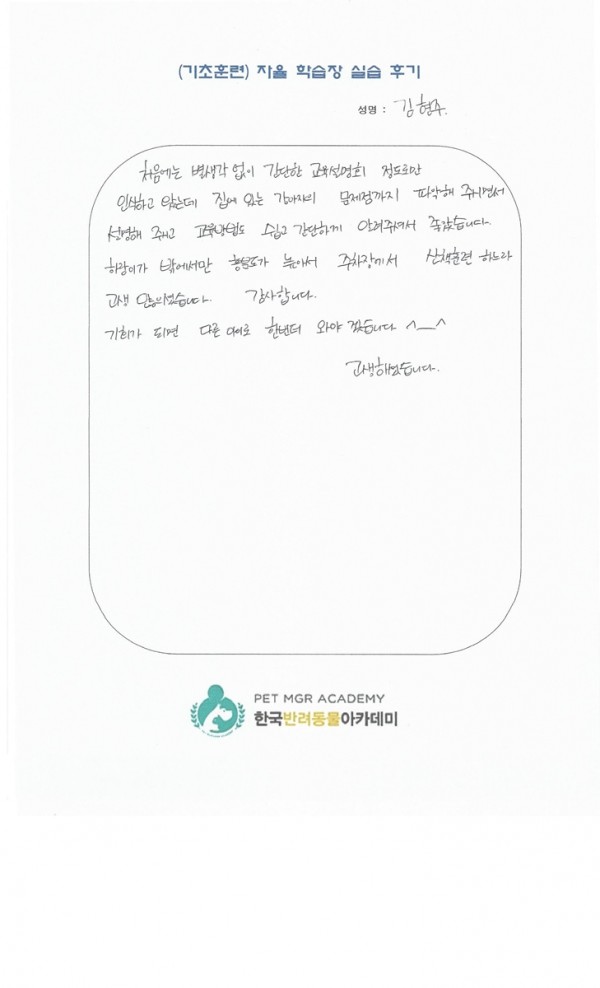 (기초훈련) 자율 학습장 실습 후기
성명 : 김형주.
처음에는 별생각 없이 간단한 교육설명회 정도로만
인식하고 왔는데 집에 있는 강아지의 문제점까지 파악해 주시면서
설명해 주시고 교육방법도 쉽고 간단하게 알려주셔서 좋았습니다.
하랑이가 밖에서만 흥분도가 높아서 주차장에서 산책훈련 하느라
고생 많으셨습니다. 감사합니다.
기회가 되면 다른 애로 한번더 와야 겠습니다 ^__^
고생하셨습니다.
PET MGR ACADEMY
한국반려동물아카데미